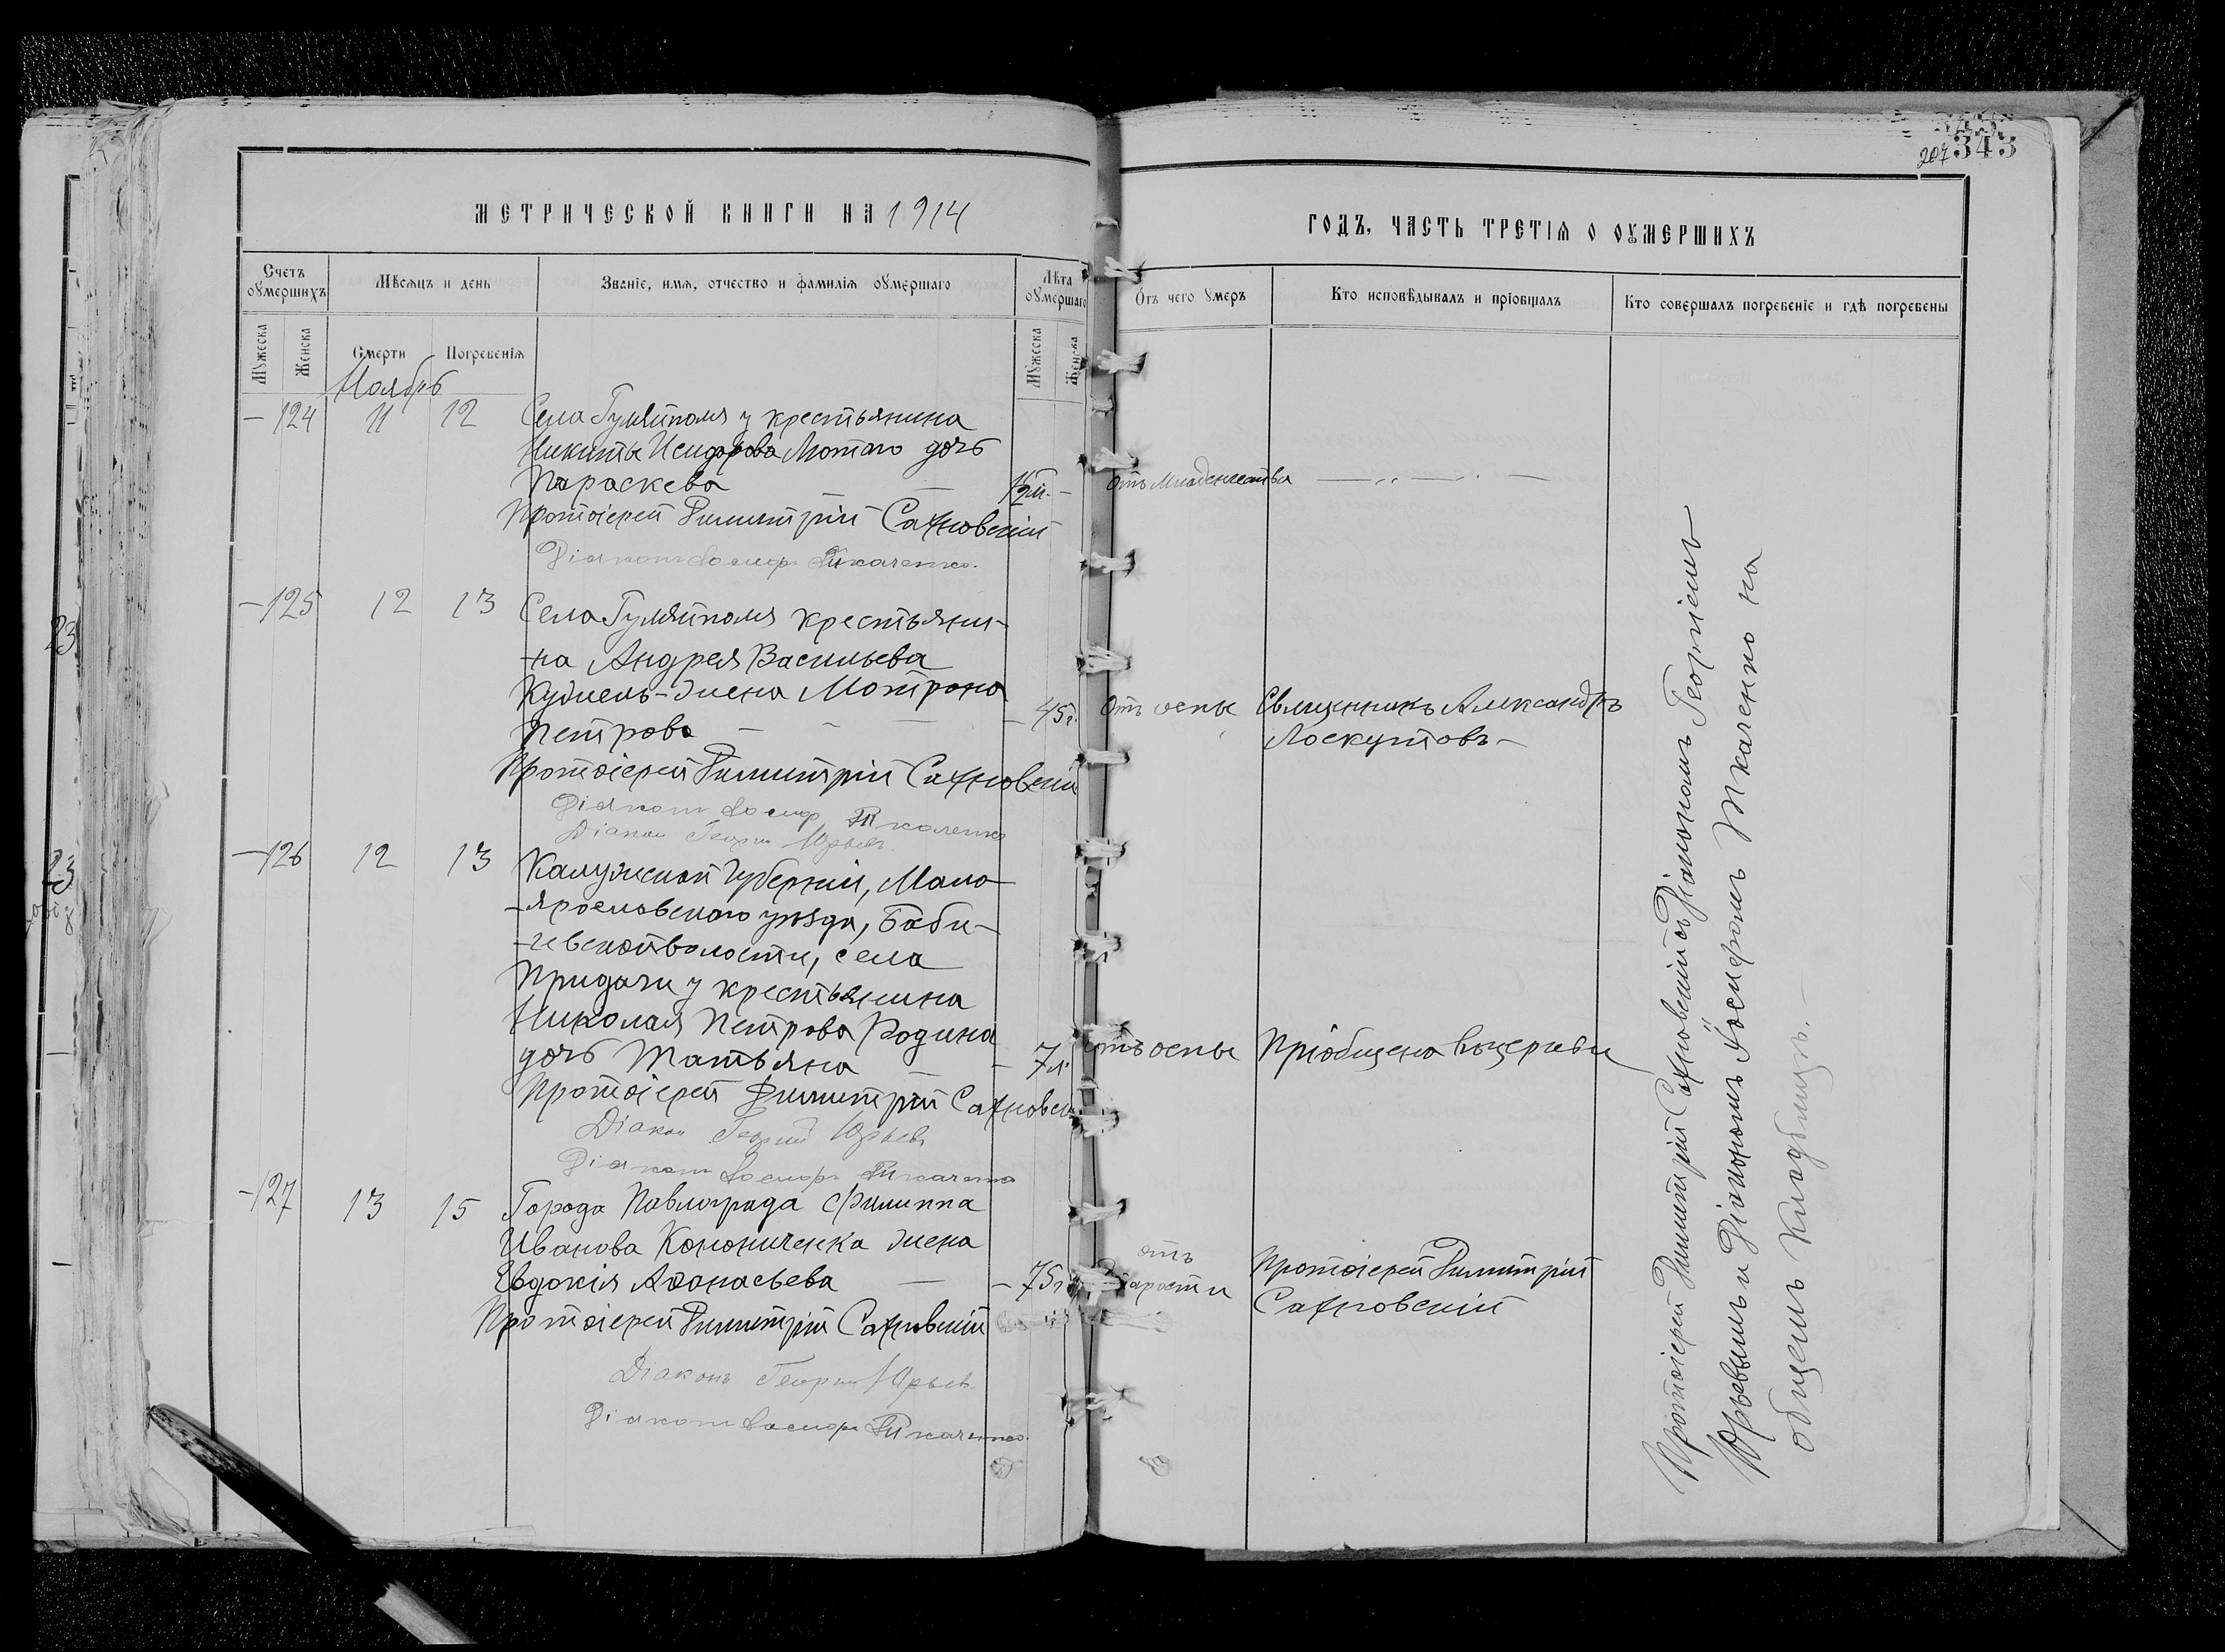 207 343
МЕТРИЧЕСКОЙ КНИГИ НА 1914
ГОДЪ, ЧАСТЬ ТРЕТІѦ О ОУМЕРШИХЪ
Счетъ оумершихъ
Мѣсѧцъ и день
Званіе, имѧ, отчество и фамиліѧ оумершаго
Лѣта оумершаго
Отъ чего умеръ
Кто исповѣдывалъ и пріобщалъ
Кто совершалъ погребеніе и гдѣ погребены
Мужеска
Женска
Смерти
Погребеніѧ
Мужеска
Женска
Ноябрь
124 11 12 Села Гуляйполя у крестьянина
Никиты Исидорова Лютаго дочь
Параскева
отъ младенчества
Протоіерей Димитрій Сахновскій
Діаконъ Іосифъ Ткаченко.
125 12 13 Села Гуляйполя крестьяни-
-на Андрея Васильева
жена Мотрона
Петрова 45 г. Отъ оспы Священникъ Александръ
Лоскутовъ
Протоіерей Димитрій Сахновскій
Діаконъ Іосифъ Ткаченко
Діаконъ Георгій Юрьевъ
126 12 13 Калужской Губерніи, Мало-
-ярославскаго уѣзда, Баби-
-чевской волости, села
Придачи у крестьянина
Николая Петрова Родина
дочь Татьяна 7 л. отъ оспы Пріобщена въ церкви
Протоіерей Димитрій Сахновскій
Діакон Георгій Юрьевъ
Діаконъ Іосифъ Ткаченко
127 13 15 Города Павлограда Филиппа
Иванова Конониченка жена
Евдокія Аѳонасьева 75 г. отъ старости Протоіерей Димитрій
Сахновскій
Протоіерей Димитрій Сахновскій
Діаконъ Георгій Юрьевъ
Діаконъ Іосифъ Ткаченко.
Протоіерей Димитрій Сахновскій съ Діакономъ Георгіемъ
Юрьевымъ и Діакономъ Іосифомъ Ткаченко на
общемъ кладбищѣ.
23
23